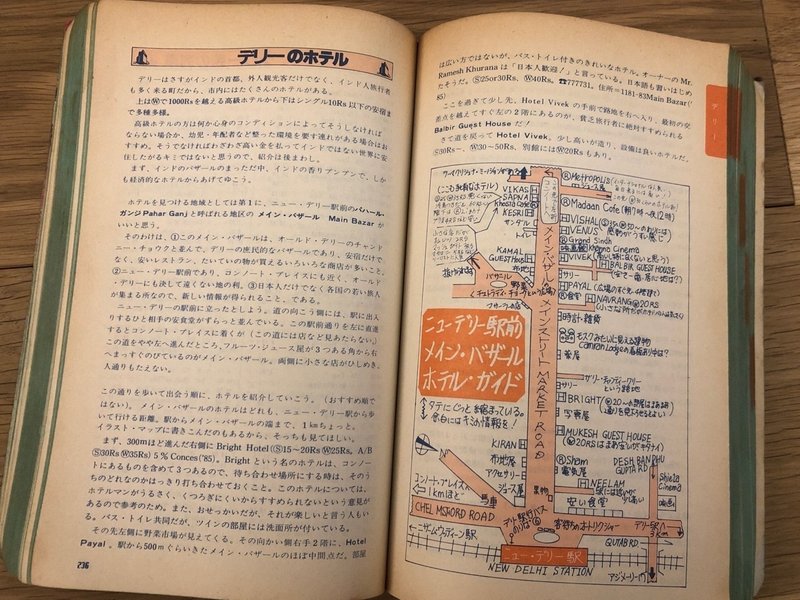 デリーのホテル
デリーはさすがインドの首都、外人観光客だけでなく、インド人旅行者
も多く来る町だから、市内にはたくさんのホテルがある。
上はⓌで1000Rsを越える高級ホテルから下はシングル10Rs以下の安宿ま
で多種多様。
高級ホテルの方は何か心身のコンディションによってそうしなければ
ならない場合か、幼児・年配者など整った環境を要す連れがある場合はお
すすめ。そうでなければわざわざ高い金を払ってインドではない世界に安
住したがるキミではないと思うので、紹介は後まわし。
まず、インドのバザールのまっただ中、インドの香りプンプンで、しか
も経済的なホテルからあげてゆこう。
ホテルを見つける地域としては第1に、ニュー・デリー駅前のパハール・
ガンジ Pahar Ganj と呼ばれる地区の メイン・バザール Main Bazar が
いいと思う。
そのわけは、①このメイン・バザールは、オールド・デリーのチャンド
ニー・チョウクと並んで、デリーの庶民的なバザールであり、安宿だけで
なく、安いレストラン、たいていの物が買えるいろいろな商店が多いこと。
②ニュー・デリー駅前であり、コンノート・プレイスにも近く、オールド
・デリーにも決して遠くない地の利。③日本人だけでなく各国の若い旅人
が集まる所なので、新しい情報が得られること、である。
ニュー・デリーの駅前に立ったとしよう。道の向こう側には、駅に出入
りするひと相手の安食堂がずらっと並んでいる。この駅前通りを左に直進
するとコンノート・プレイスに着くが（この道には店など見あたらない。）
この道をやや左へ進んだところ、フルーツ・ジュース屋が3つある角から右
へまっすぐのびているのがメイン・バザール。両側に小さな店がひしめき、
人通りもたえない。
この通りを歩いて出会う順に、ホテルを紹介していこう。（おすすめ順で
はない）。メイン・バザールのホテルはどれも、ニュー・デリー駅から歩
いて行ける距離。駅からメイン・バザールの端まで、1kmちょっと。
イラスト・マップに書きこんだのもあるから、そっちも見てほしい。
まず、300mほど進んだ右側に Bright Hotel (Ⓢ15～20Rs Ⓦ25Rs, A/B
Ⓢ30Rs Ⓦ35Rs) 5% Conces('85)。Brightという名のホテルは、コンノ
ートにあるものを含めて3つあるので、待ち合わせ場所にする時は、そのう
ちのどれなのかはっきり打ち合わせておくこと。このホテルについては、
ホテルマンがうるさく、くつろぎにくいからすすめられないという意見が
あるので参考のため。また、おせっかいだが、それが楽しいと言う人もい
る。バス・トイレ共同だが、ツインの部屋には洗面所が付いている。
その先左側に野菜市場が見えてくる。その向かい側右手2階に、Hotel
Payal。駅から500mぐらいきたメイン・バザールのほぼ中間点だ。部屋
236
は広い方ではないが、バス・トイレ付のきれいなホテル。オーナーの Mr.
Ramesh Khurana は「日本人歓迎！」と言っている。日本語も習いはじめ
たそうだ。(Ⓢ25or30Rs, Ⓦ40Rs。☎777731。住所=1181-83Main Bazar('
85)
ここを過ぎて少し先、Hotel Vivek の手前で路地を右へ入り、最初の交
差点を越えてすぐ左の2階にあるのが、貧乏旅行者に絶対すすめられる
Balbir Guest House だ！
さて道を戻って Hotel Vivek。少し高いが造り、設備は良いホテルだ。
Ⓢ30Rs～、Ⓦ30～50Rs、別館にはⓌ20Rsもあり。
デリー
VIKAS
SAPNA
KESRI
サンダル
トイレ
KAMAL
GUEST HOUSE
布地
バザール
野菜
METROPOLIS
Madaan Cafe (朝7時～夜12時)
VISHAL
VENUS
Grand Sindh
映画館 Khanna Cinema
VIVEK
BALBIR GUEST HOUSE
サリー
PAYAL
食堂
NAVRANG
時計, 雑貨
茶屋
サリー
BRIGHT
写真屋
MUKESH GUEST HOUSE
Sham
電気屋
NEELAM
安い食堂
メイン・バザール
メインストリート
MARKET ROAD
ニューデリー駅前
メイン・バザール
ホテル・ガイド
タテにぐっと縮まっている。
余白にはキミの情報を！
KIRAN
布地屋
アクセサリー
ジュース屋
果物
コンノート・プレイスへ
1kmほど
馬車
CHELMSFORD ROAD
客待ちのオートリクシャー
DESH BANDHU
GUPTA RD
Shiela
Cinema
映画
デリー駅へ
3km
QUTAB RD
ニュー・デリー駅
NEW DELHI STATION
アジメーリー門